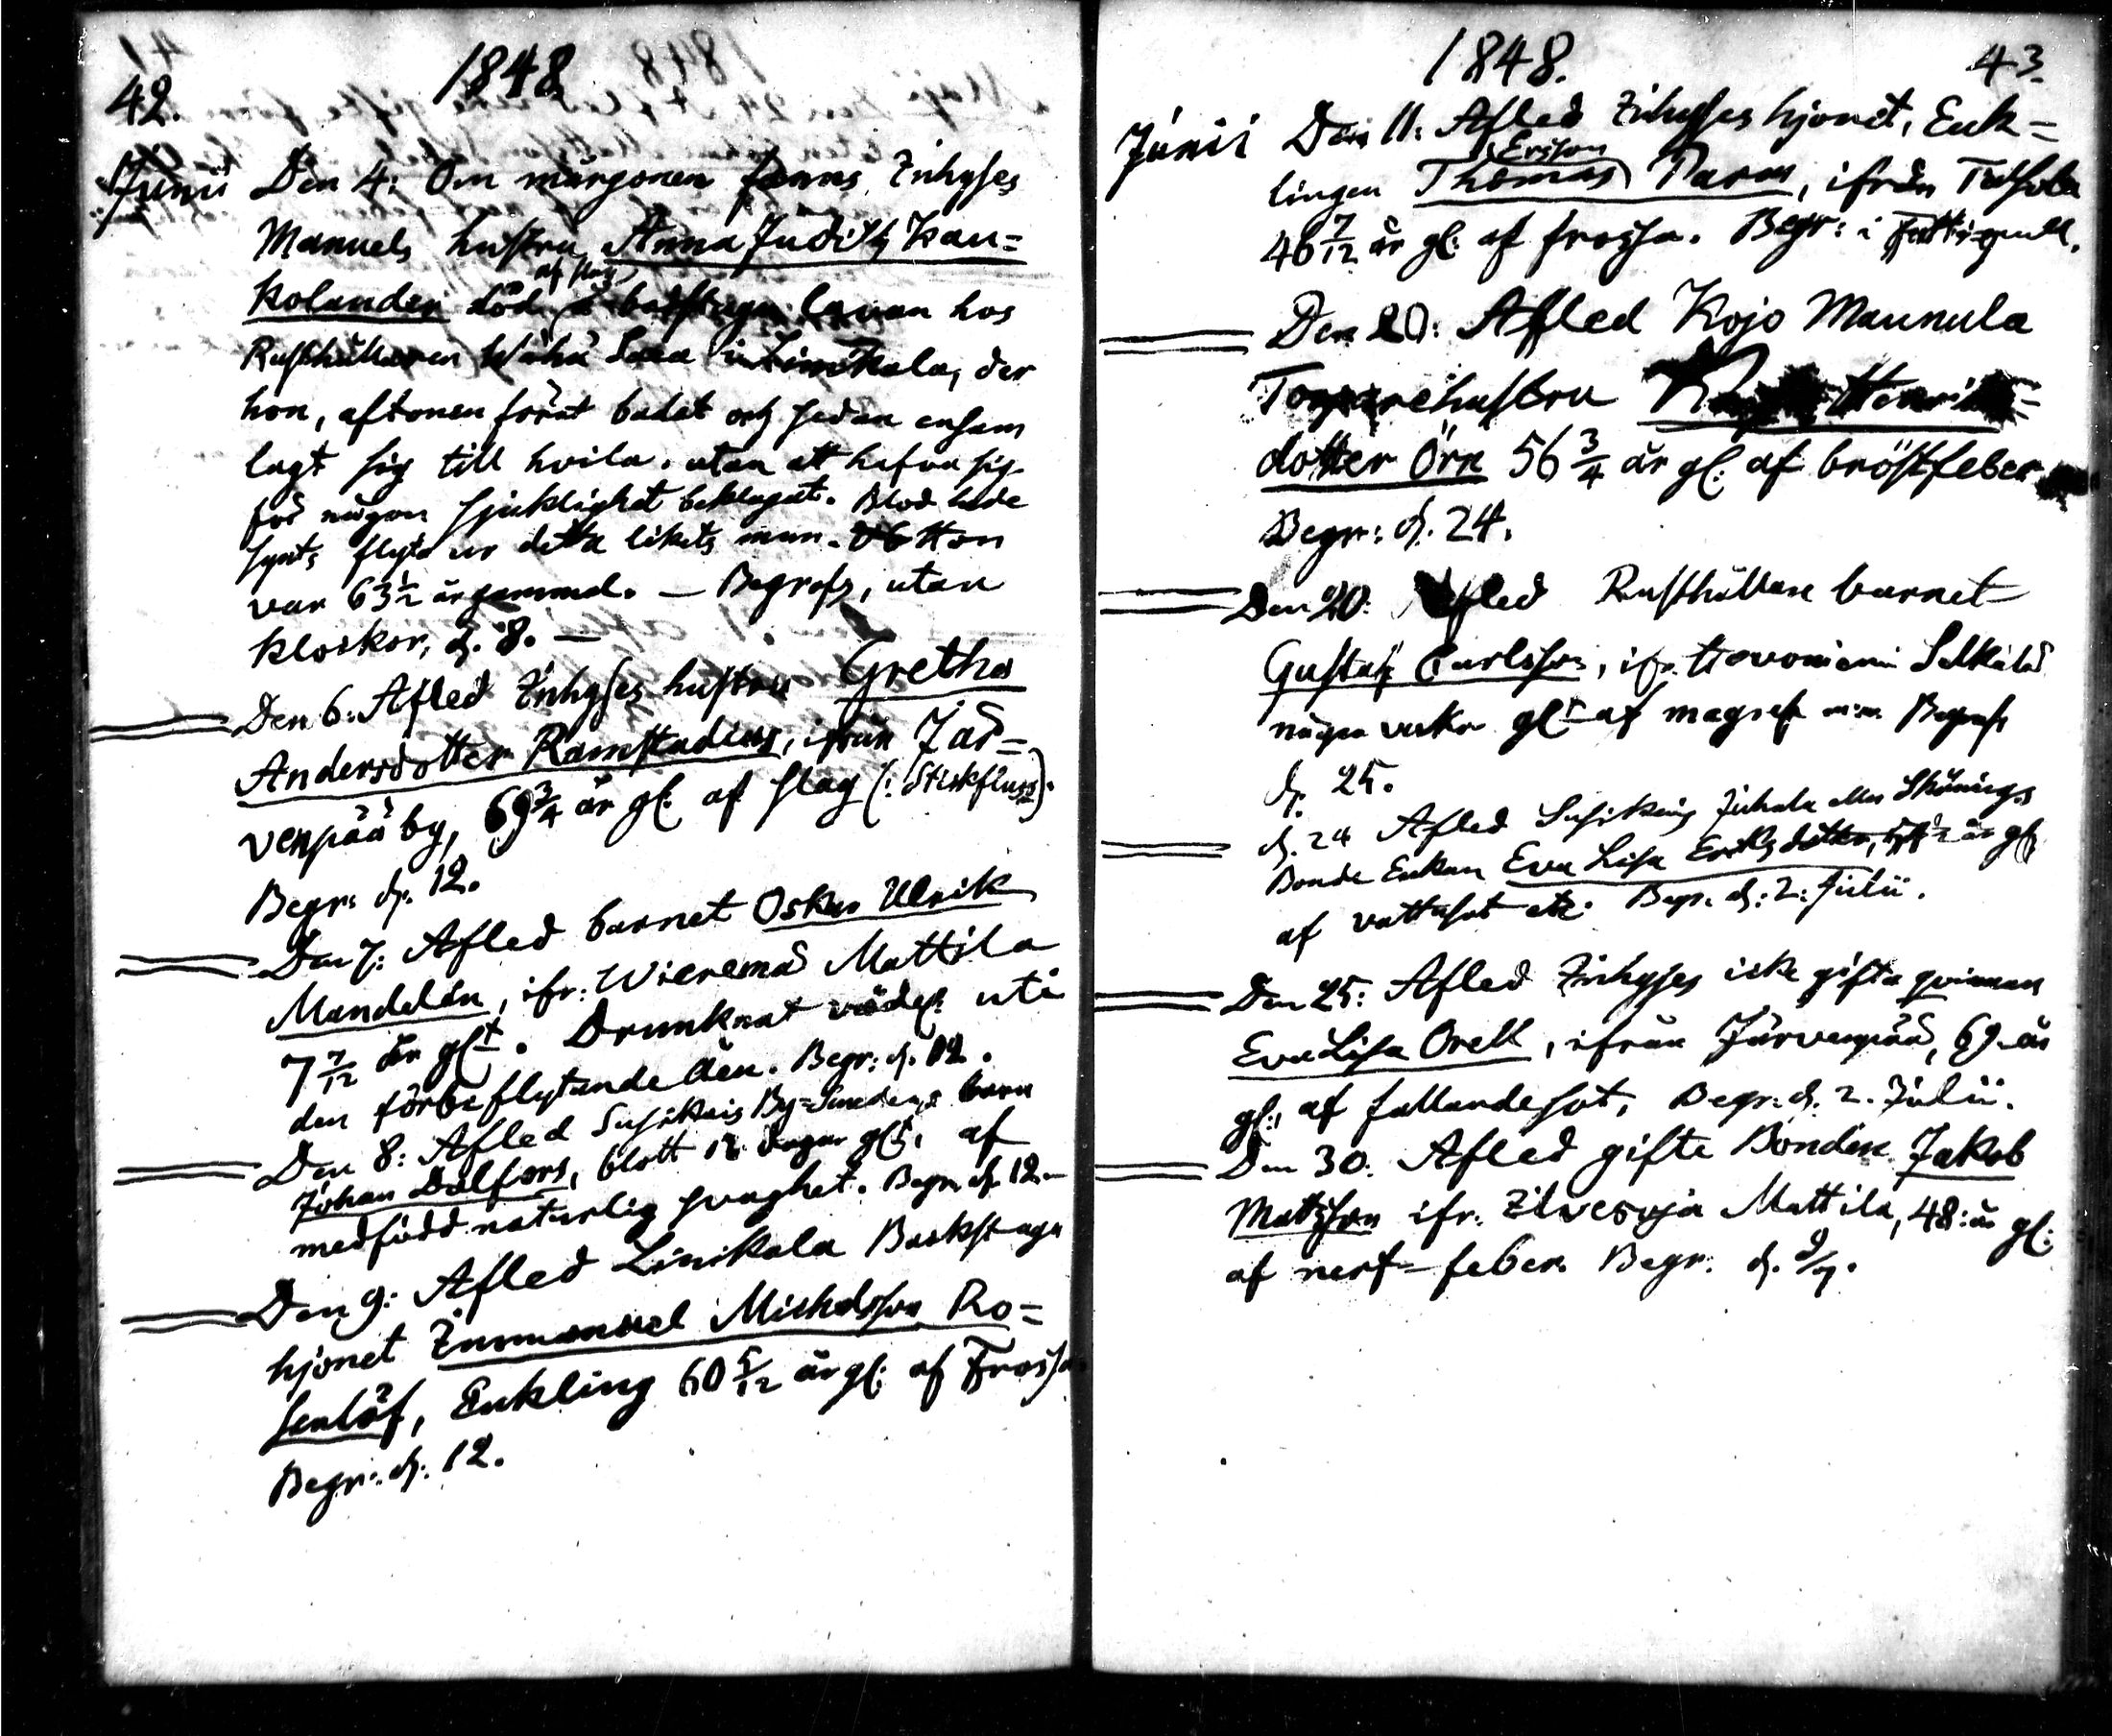 42. 1848
Junii Den 4: Om morgonen fanns Inhyses
Manuels hustru Anna Judith Kau=
kolander död af slag lavan hos
Rusthållaren Wähä in Linikala, der
hon, aftonen förut badat och sedan ensam
lagt sig till hvila, utan att hafva sig
för någon sjuklighet beklagat. Blod hade
synts flyta ur detta likets mun. Hon
var 63½ år gammal. — Begrofs, utan
klockor, d. 8. —
Den 6: Afled Inhyses hustru Gretha
Andersdotter Ramstadius, ifrån Jär=
venpää by, 69¾ år gl. af slag (: Stickfluss).
Begr: d. 12.
Den 7: Afled barnet Oskar Ulrik
Mandelin, ifr: Wieremä Mattila
7 7/12 år glt. Drunknat uti
den förbiflytande åen. Begr: d. 12.
Den 8: Afled Susikais By=Smedens barn
Johan Dalfors, blott 12 dagar glt, af
medfödd naturlig svaghet. Begr. d. 12. —
Den 9: Afled Linikala Backstugu
hjonet Immanuel Michelsson Ro=
senlöf, Enkling 60 5/12 år gl: af Frossa
Begr: d. 12.
1848. 43.
Junii Den 11: Afled Inhyses hjonet, Enk=
lingen Thomas Ersson Parm, ifrån
46 7/12 år gl: af frossa. Begr: i
Den 20: Afled Kojo Maunula
Torparehustru Henriks=
dotter Örn 56¾ år gl: af bröstfeber
Begr: d. 24.
Den 20: Afled Rusthållare barnet
Gustaf Carlsson, ifr. Havoniemi
några veckor glt af magref m.m. Begrafs
d. 25.
d. 24 Afled Susikais Juhala eller Skönings
Bonde Enkan Eva Lisa Eriksdotter, år gl
af vattusot etc. Begr. d: 2: Julii.
Den 25: Afled Inhyses icke gifta qvinnan
Eva Lisa Orell, ifrån Järvenpää, 69 år
gl: af fallandesot, Begr: d. 2. Julii.
Den 30: Afled gifte Bonden Jakob
Matsson ifr. Ilvesoja Mattila, 48: år gl:
af nerf=feber. Begr. d. 9/7.